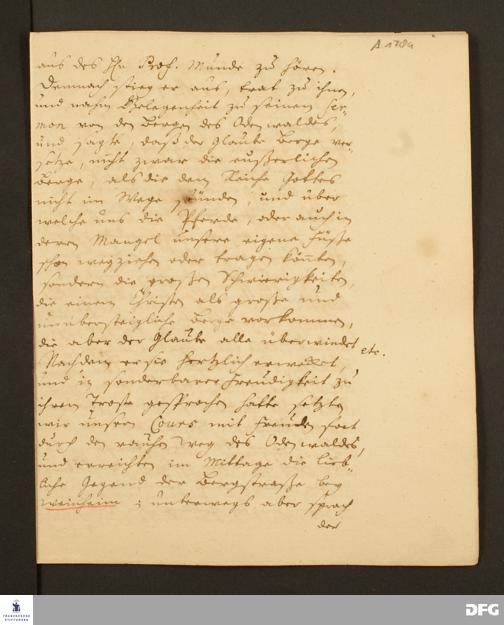 A 178a
aus des Hn. Prof. Munde zu hören.
Demnach stieg er aus, trat zu ihnen,
und nahm Gelegenheit zu seinem ser-
mon von den Bergen des Odenwaldes,
und sagte, daß der Glaube Berge ver-
setze, nicht zwar die eußerlichen
Berge, als die dem Reiche Gottes
nicht im Wege stünden, und über
welche uns die Pferde, oder auch in
deren Mangel unsere eigene Füße
schon wegziehen oder tragen könten,
sondern die großen Schwierigkeiten,
die einem Christen als große und
unübersteigliche Berge vorkommen,
die aber der Glaube alle überwindet etc.
Nachdem er sie hertzlich ermahnet,
und in sonderbarer Freudigkeit zu
ihrem Troste gesprochen hatte, setzten
wir unsern Cours mit Freuden fort
durch den rauhen Weg des Odenwaldes,
und erreichten im Mittage die lieb-
liche Gegend der Bergstraße bey
Weinheim; unterwegs aber sprach
der
FRANCKESCHE
STIFTUNGEN
DFG